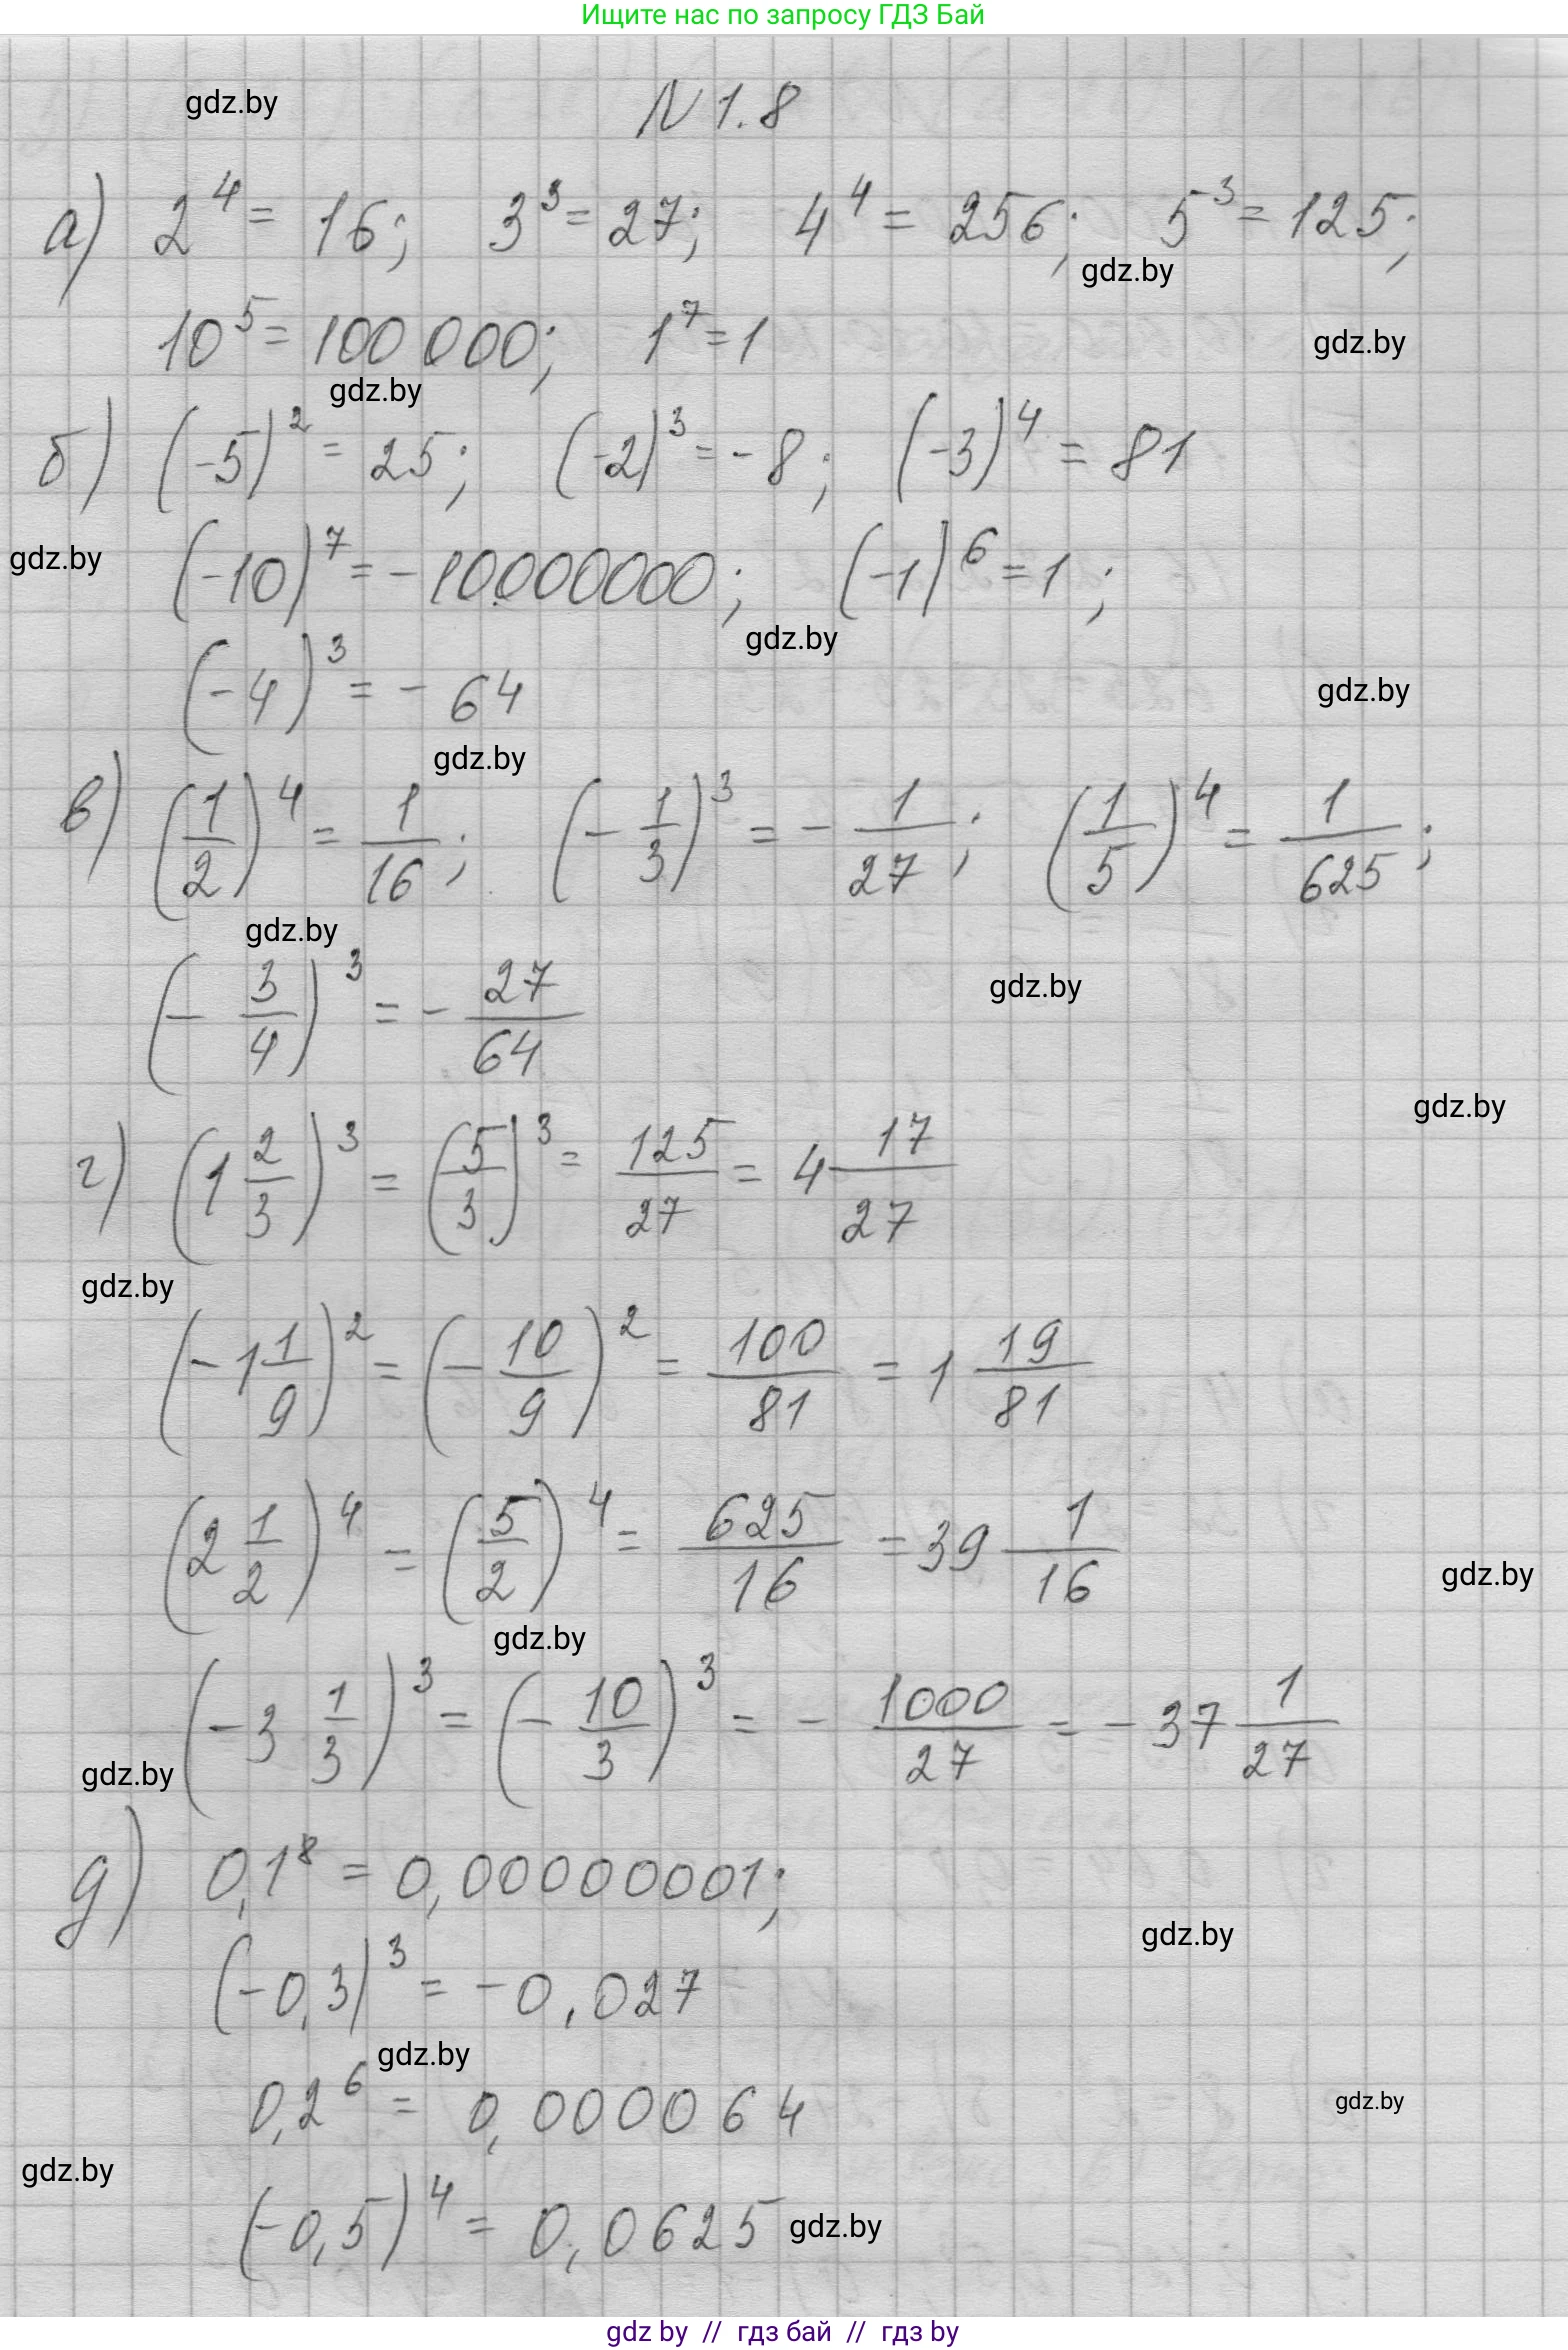 Ищите нас по запросу ГДЗ Бай
gdz.by
N 1.8
а) 2^4 = 16; 3^3 = 27; 4^4 = 256; 5^3 = 125;
gdz.by
10^5 = 100 000; 1^7 = 1
gdz.by
gdz.by
б) (-5)^2 = 25; (-2)^3 = -8; (-3)^4 = 81
gdz.by
(-10)^7 = -10000000; (-1)^6 = 1;
gdz.by
(-4)^3 = - 64
gdz.by
gdz.by
в) (1/2)^4 = 1/16; (- 1/3)^3 = - 1/27; (1/5)^4 = 1/625;
gdz.by
(- 3/4)^3 = - 27/64
gdz.by
gdz.by
г) (1 2/3)^3 = (5/3)^3 = 125/27 = 4 17/27
gdz.by
(-1 1/9)^2 = (- 10/9)^2 = 100/81 = 1 19/81
(2 1/2)^4 = (5/2)^4 = 625/16 = 39 1/16
gdz.by
gdz.by
(-3 1/3)^3 = (- 10/3)^3 = - 1000/27 = - 37 1/27
gdz.by
д) 0,1^8 = 0,00000001;
gdz.by
(-0,3)^3 = -0,027
gdz.by
0,2^6 = 0,000064
gdz.by
gdz.by
(-0,5)^4 = 0,0625
gdz.by
gdz by // гдз бай // гдз by